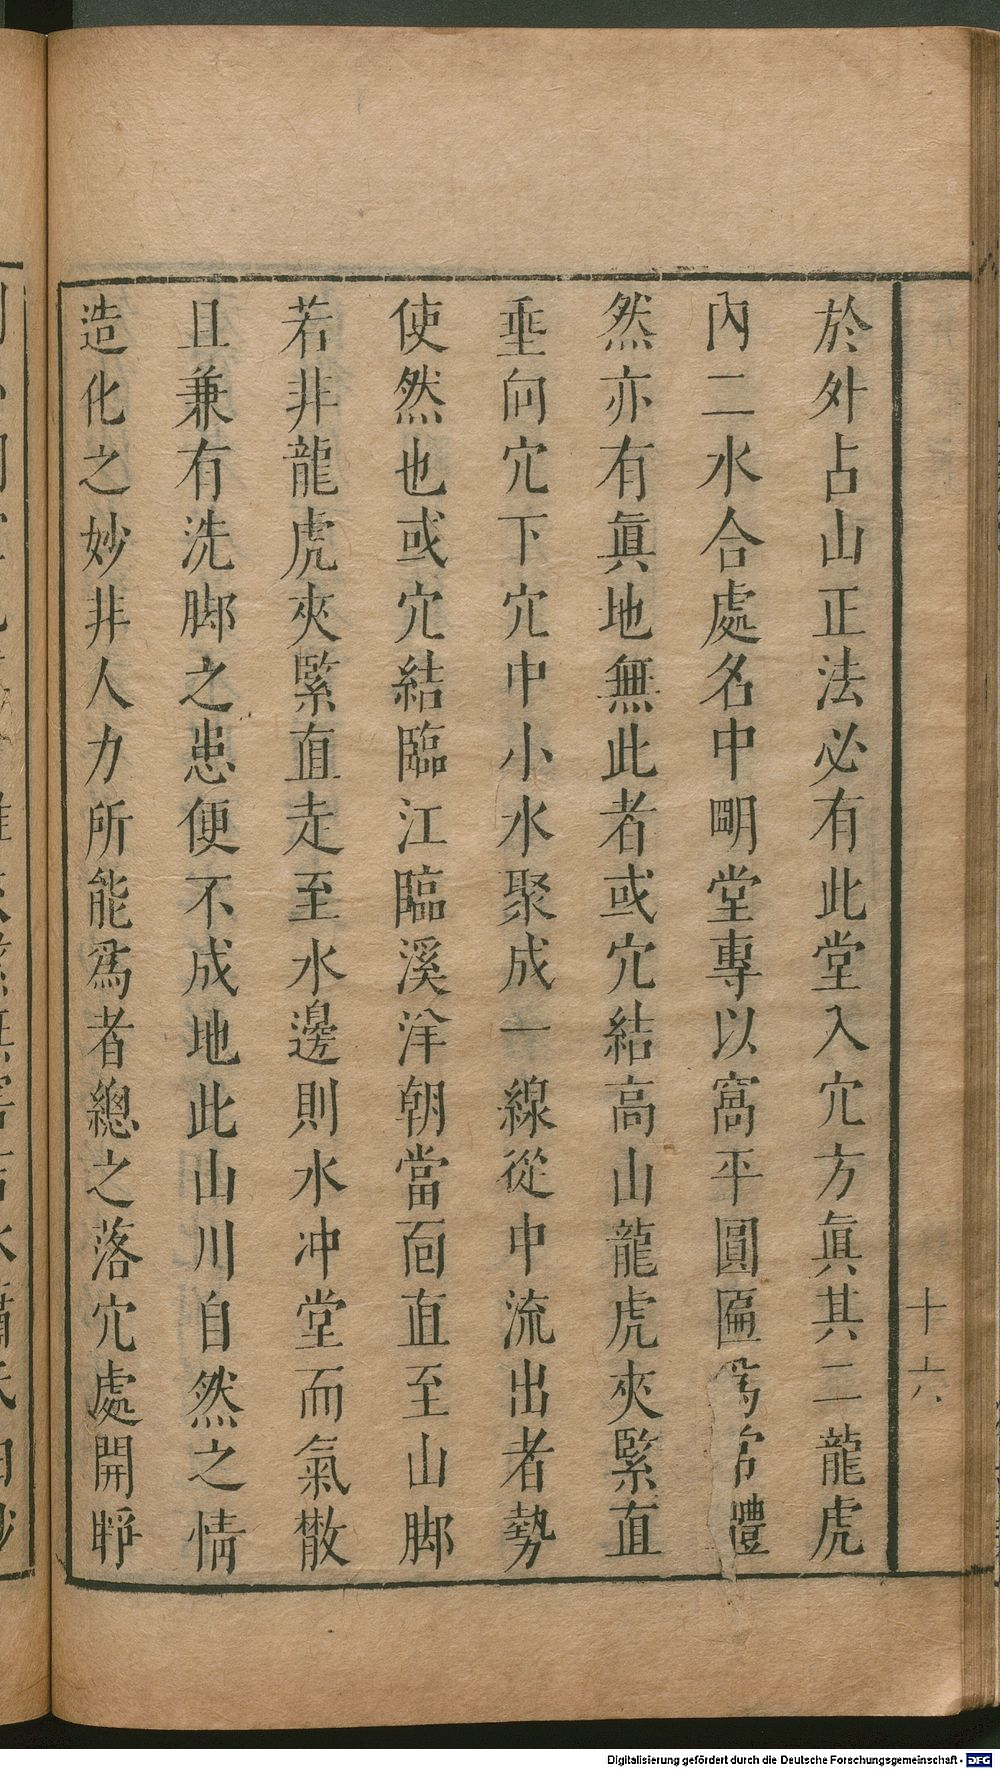 於外占山正法必有此堂入穴方眞其二龍虎
內二水合處名中明堂專以窩平圓匾爲合體
然亦有眞地無此者或穴結高山龍虎夾緊直
垂向穴下穴中小水聚成一線從中流出者勢
使然也或穴結臨江臨溪洋朝當面直至山脚
若非龍虎夾緊直走至水邊則水冲堂而氣散
且兼有洗脚之患便不成地此山川自然之情
造化之妙非人力所能爲者總之落穴處開睜
十六
Digitalisierung gefördert durch die Deutsche Forschungsgemeinschaft - DFG